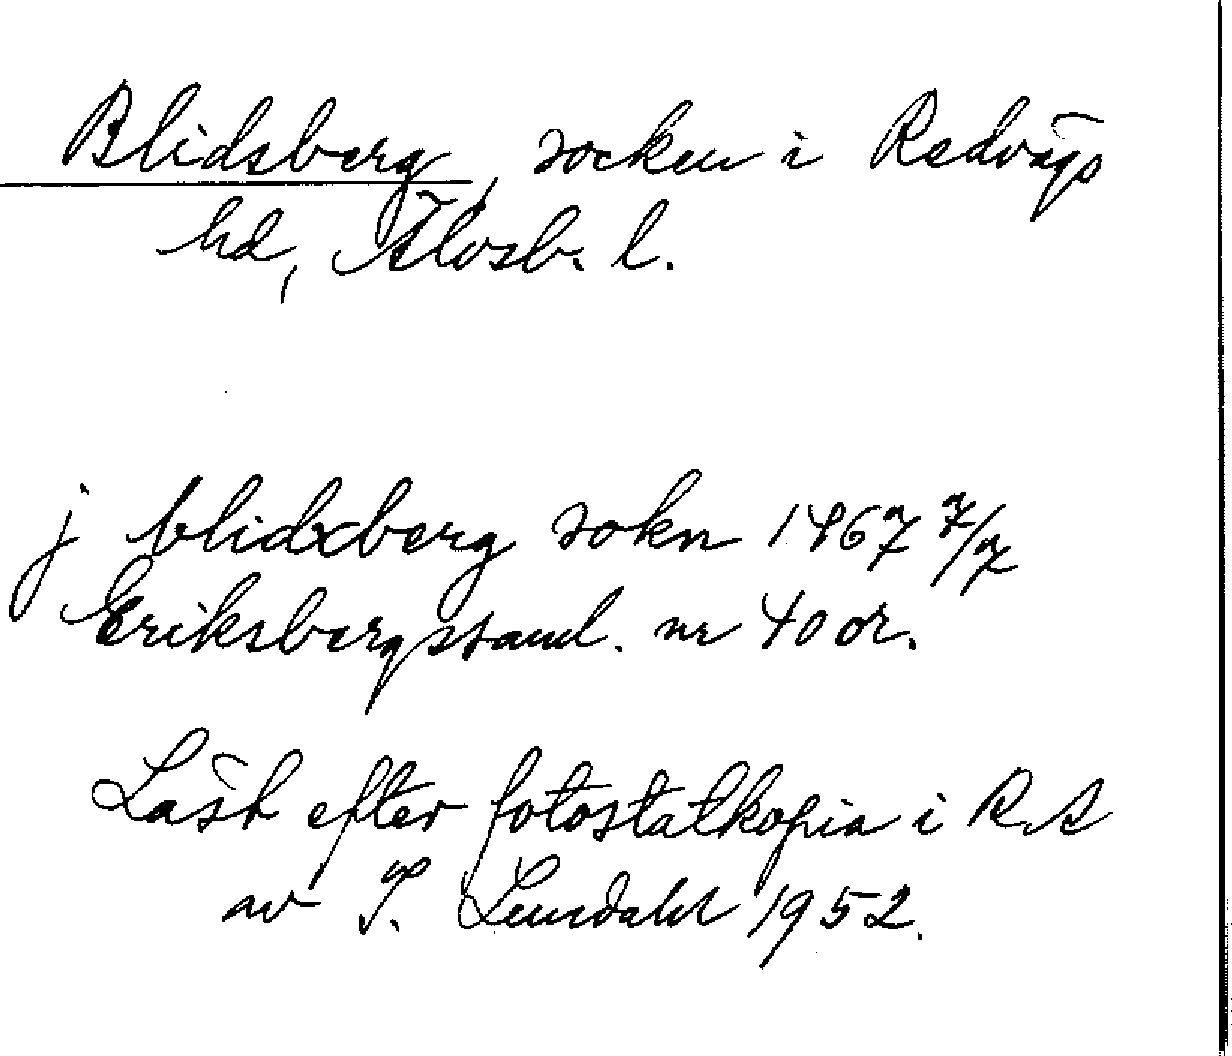 Blidsberg, socken i Redvägs
hd, Älvsb. l.
j blidxberg sokn 1467 7/7
Eriksbergssaml. nr 40 or.
Läst efter fotostatkopia i RA
av I. Lundahl 1952.